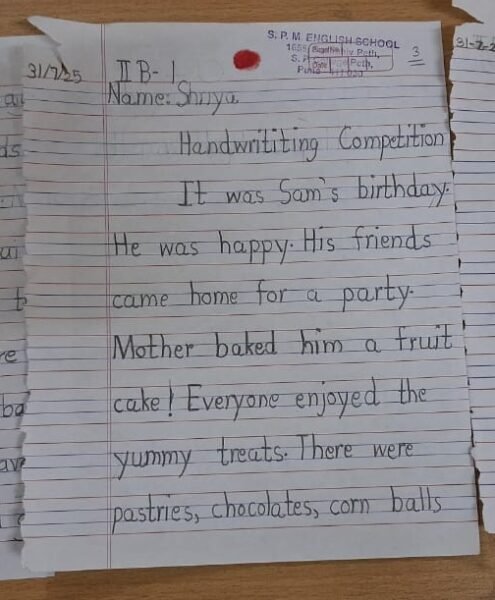 S. P. M. ENGLISH SCHOOL
3
31/7/25 II B- 1
Name: Shriya
Handwrititing Competition
It was Sam's birthday.
He was happy. His friends
came home for a party.
Mother baked him a fruit
cake! Everyone enjoyed the
yummy treats. There were
pastries, chocolates, corn balls